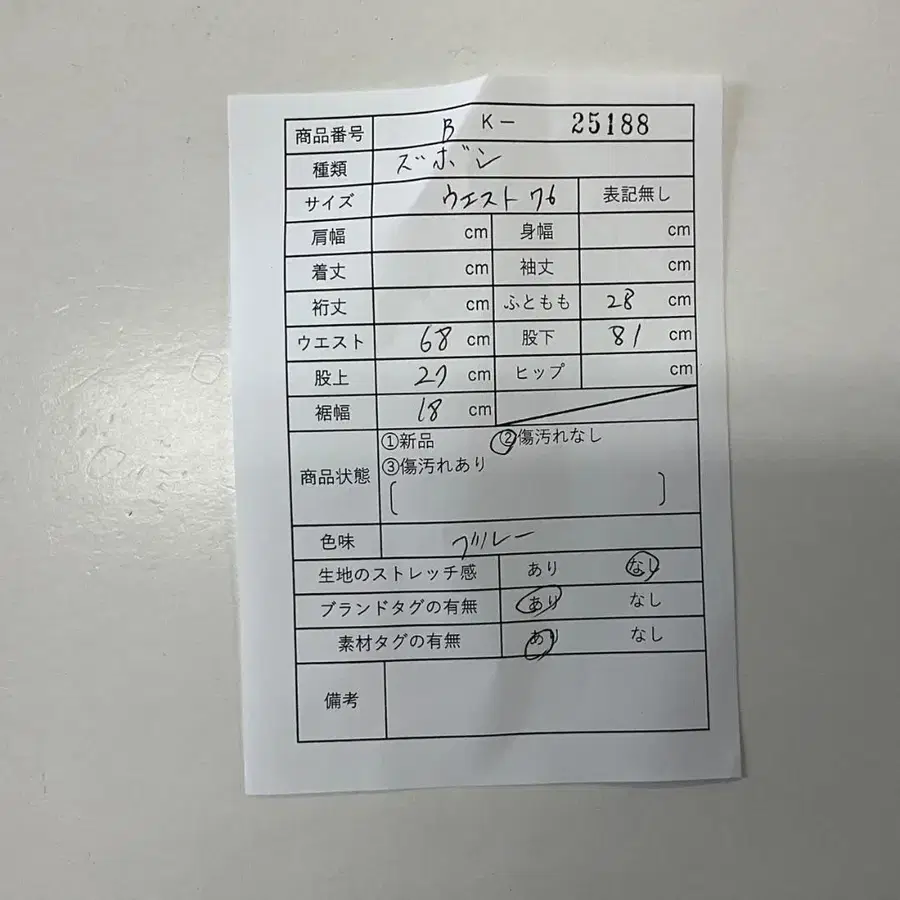 商品番号 B K- 25188
種類 ズボン
サイズ ウエスト 76 表記無し
肩幅 cm 身幅 cm
着丈 cm 袖丈 cm
裄丈 cm ふともも 28 cm
ウエスト 68 cm 股下 81 cm
股上 27 cm ヒップ cm
裾幅 18 cm
①新品 ②傷汚れなし
商品状態 ③傷汚れあり
色味 ブルー
生地のストレッチ感 あり なし
ブランドタグの有無 あり なし
素材タグの有無 あり なし
備考